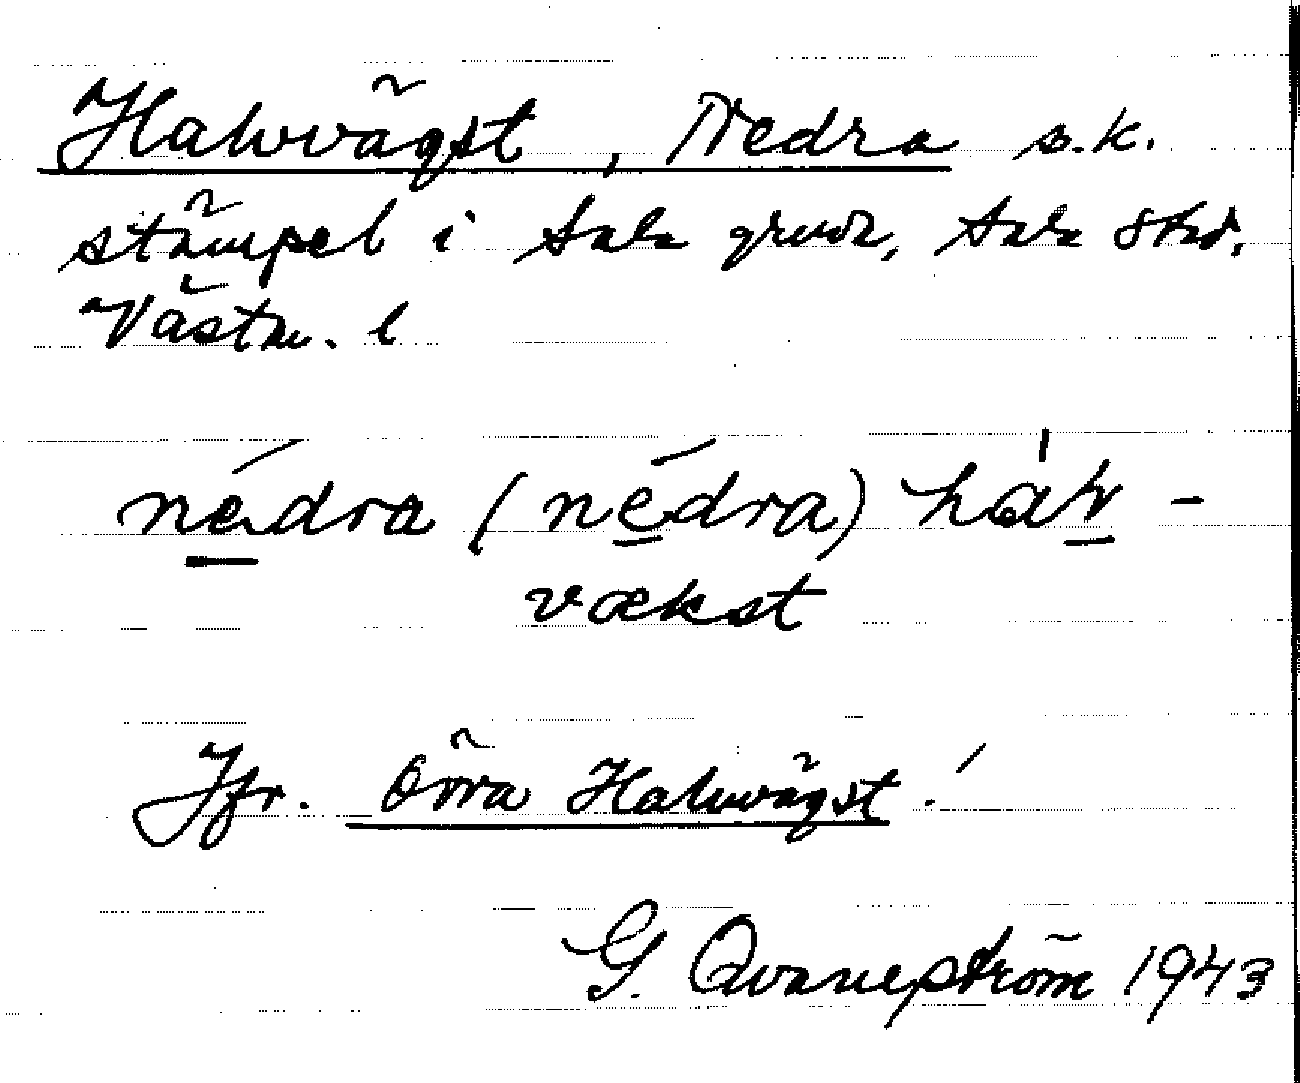 Halvvägst, Nedra s.k.
stämpel i Sala gruva, Sala stad,
Västm. l
nédra (nédra) háv-
vækst
Jfr. Övra Halvvägst!
G. Qvarnström 1943